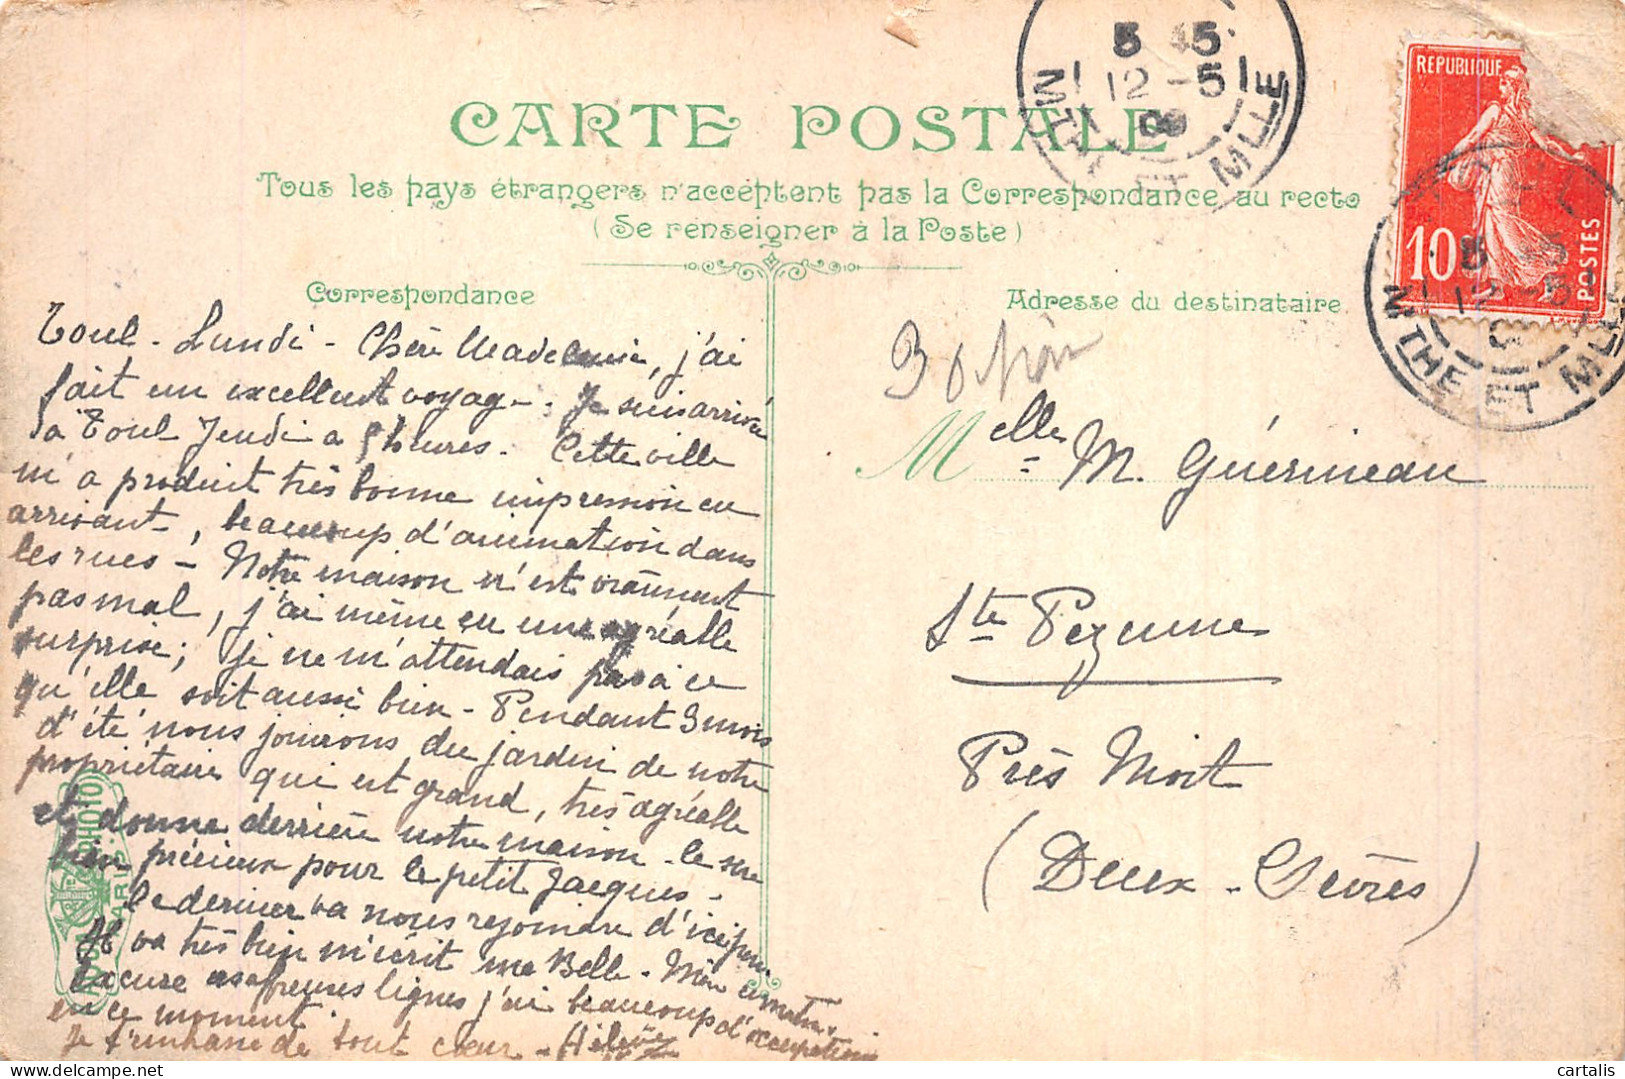 CARTE POSTALE
Tous les pays étrangers n'acceptent pas la Correspondance au recto
(Se renseigner à la Poste)
Correspondance
Adresse du destinataire
Toul - Lundi - Chère Madeleine, j'ai
fait un excellent voyage. Je suis arrivée
à Toul Jeudi à 5 heures. Cette ville
m'a produit très bonne impression en
arrivant, beaucoup d'animation dans
les rues - Notre maison n'est vraiment
pas mal, j'ai même eu une agréable
surprise; je ne m'attendais pas à ce
qu'elle soit aussi bien - Pendant 3 mois
d'été nous jouirons du jardin de notre
propriétaire qui est grand, très agréable
et donne derrière notre maison - Ce sera
bien précieux pour le petit Jacques -
Ce dernier va nous rejoindre d'ici peu
Il va très bien m'écrit ma Belle - Mère
Excuse ces affreuses lignes j'ai beaucoup d'occupations
en ce moment.
Je t'embrasse de tout cœur - Hélène
Melle M. Guérineau
Ste Pezenne
Près Niort
(Deux-Sèvres)
REPUBLIQUE
10
POSTES
5 45
12 - 5
09
MTHE ET MLLE
TOUL
5 45
12 - 5
09
MTHE ET MLLE
PHOTO
PARIS
cartalis
delcampe.net